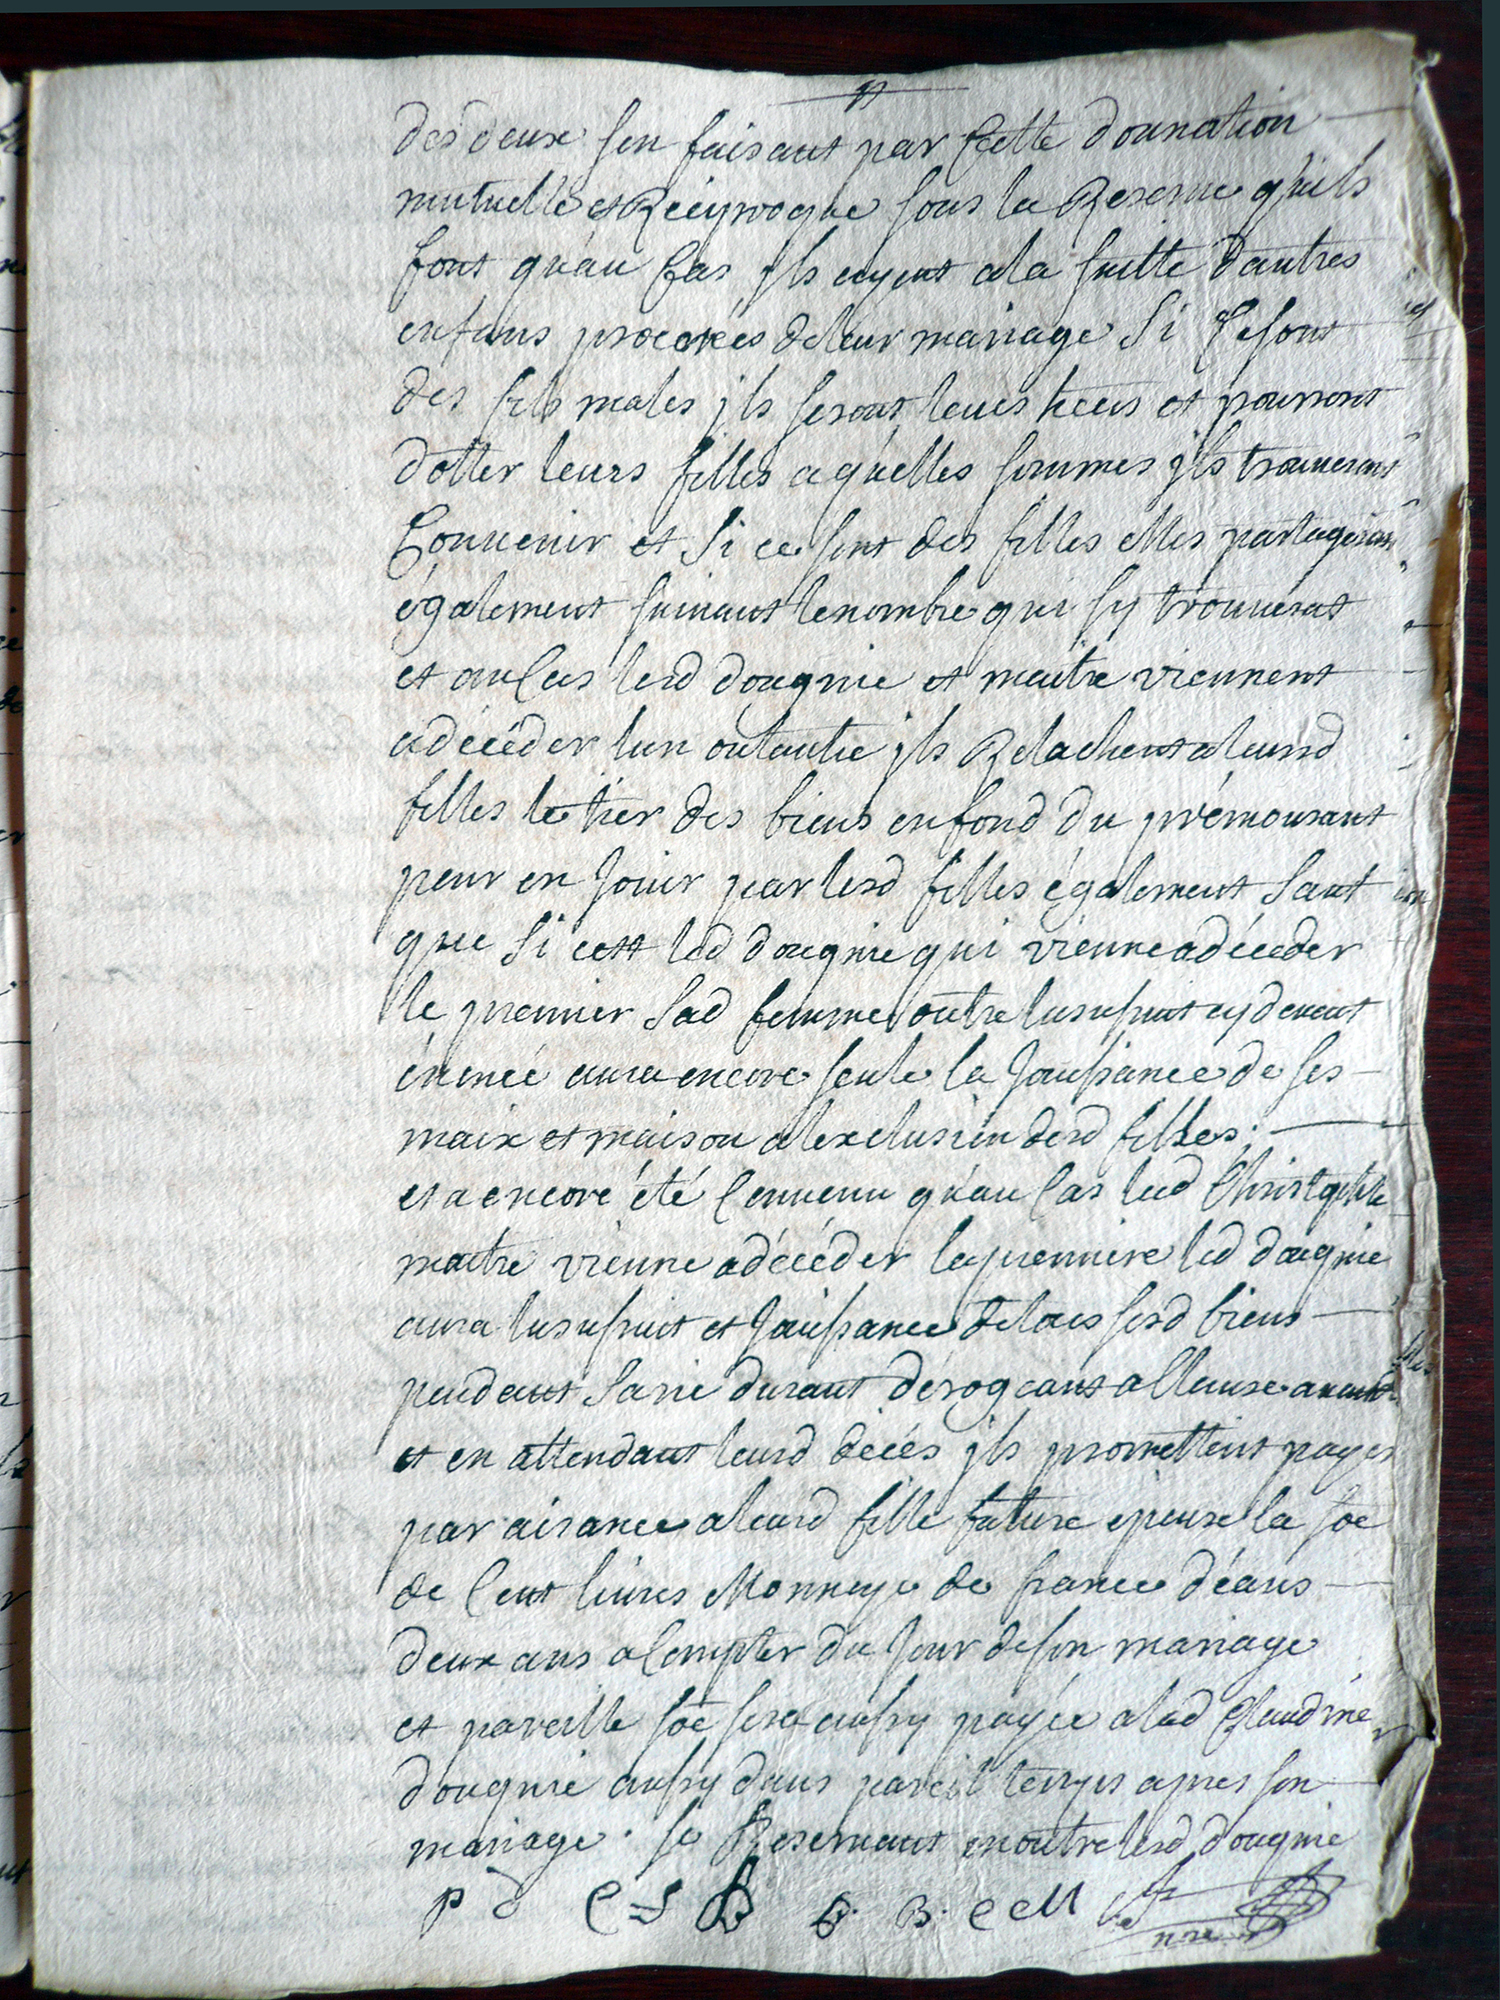 des deux sen faisant par Cette donnation
mutuelle et Reciproque sous la Reserue quils
font quau Cas jls ayent ala suitte dautres
enfans procréés deleur mariage Si Cesont
des fils males jls seront leurs heers et pourront
dotter leurs filles a quelles sommes jls trouueront
Conuenir et Si ce sont des filles elles partageront
également suiuant lenombre qui sy trouuerat
et aucas lesd dougnie et maitre viennent
adécéder lun oulautre jls Relachent aleursd
filles le tier des biens enfond du prémourant
pour en Jouir par lesd filles également Sauf
que Si cest led dougnie qui vienne adéceder
le premier Sad femme outre lusufruit cydeuant
énoncé aura encore seule la Joüissance de ses
maix et maison alexclusion desd filles;
et a encore été Conuenu quau Cas lad Christophle
maitre vienne adécéder lapremiere led dougnie
aura lusufruit et Joüissance detous sesd biens
pendant Sauie durant dérogeant allause auant
et en attendant leursd décés jls promettent payer
par auance aleursd fille future epouse la soe
de Cent liures Monnoye de france dans
deux ans a Compter du Jour deson mariage
et pareille soe sera aussy payée alad Claudine
dougnie aussy dans pareil temps apres son
mariage. se Reseruant enoutre lesd dougnie
P D C S B B. B. C M
nre